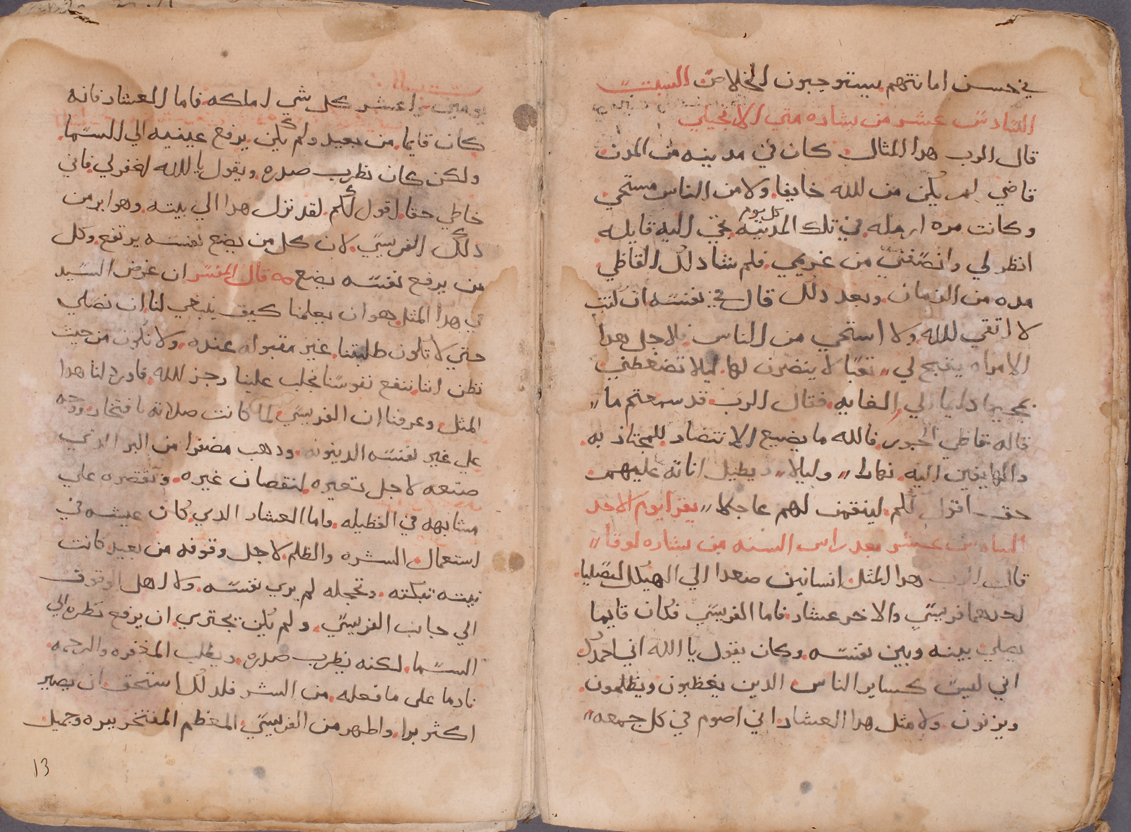 في حسن امانتهم يستوجبون الخلاص السبت
السادس عشر من بشاره متي الانجيلي
قال الرب هدا المثال كان في مدينه من المدن
قاضي لم يكن من الله خايفا ولا من الناس مستحي
وكانت مره ارمله في تلك المدينه كل يوم تجي اليه قايله
انظر لي وانصفني من غريمي فلم يشا دلك القاظي
مده من الزمان وبعد دلك قال في نفسه ان كنت
لا اتقي الله ولا استحي من الناس فلاجل هدا
الامراه ينتج لي تعبا لا ينتصرن لها ليلا تضغطني
بمجيها دايما لي الغايه فقال الرب قد سمعتم ما
قاله قاظي الجور فالله ما يصيع الانتصار للمختار به
والهايفين اليه نهارا وليلا ويطيل اناته عليهم
حق اقول لكم لينقمن لهم عاجلا يقرا يوم الاحد
السادس عشر بعد راس السنه من بشاره لوقا
قال الرب هدا المثل انسانين صعدا الي الهيكل ليصليا
احدهما فريسي والاخر عشار فاما الفريسي فكان قايما
يصلي بينه وبين نفسه وكان يقول يا الله اني احمدك
اني لست كساير الناس الدين يغظبون ويظلمون
ويزنون ولا مثل هدا العشار اني اصوم في كل جمعه
يومين واعشر كل شي املكه فاما العشار فانه
كان قايما من بعيد ولم يكن يرفع عينيه الي السما
ولكن كان يظرب صدره ويقول يا الله اغفر لي فاني
خاطي حقا اقول لكم لقد نزل هدا الي بيته وهو ابر من
دلك الفريسي لان كل من يضع نفسه يرتفع وكل
من يرفع نفسه يضع قال المفسر ان غرض السيد
في هدا المثل هو ان يعلمنا كيف ينبغي لنا ان نصلي
حتي لا تكون طلبتنا غير مقبوله عنده ولا نكون من حيث
نظن اننا ننفع نفوسنا نجلب علينا رجز الله فاورد لنا هدا
المثل وعرفنا ان الفريسي لما كانت صلاته بافتخار ووجه
علي غير نفسه الدينونه ودهب مصفرا من البر الدي
صنعه لاجل تعيره لنقصان غيره وتقصره علي
مشابهه في الفظيله واما العشار الدي كان عيشه في
استعمال الشره والظلم لاجل وقوفه من بعيد كانت
نيته تبكته وتخجله لم يرى نفسه ولا اهل الوقوف
الي جانب الفريسي ولم يكن يجتري ان يرفع نظره الي
السما لكنه يظرب صدره ويطلب المغفره والرحمه
نادما علي ما فعله من الشر فلدلك استحق ان يصير
اكثر برا واطهر من الفريسي المعظم المفتخر ببره وجميل
13